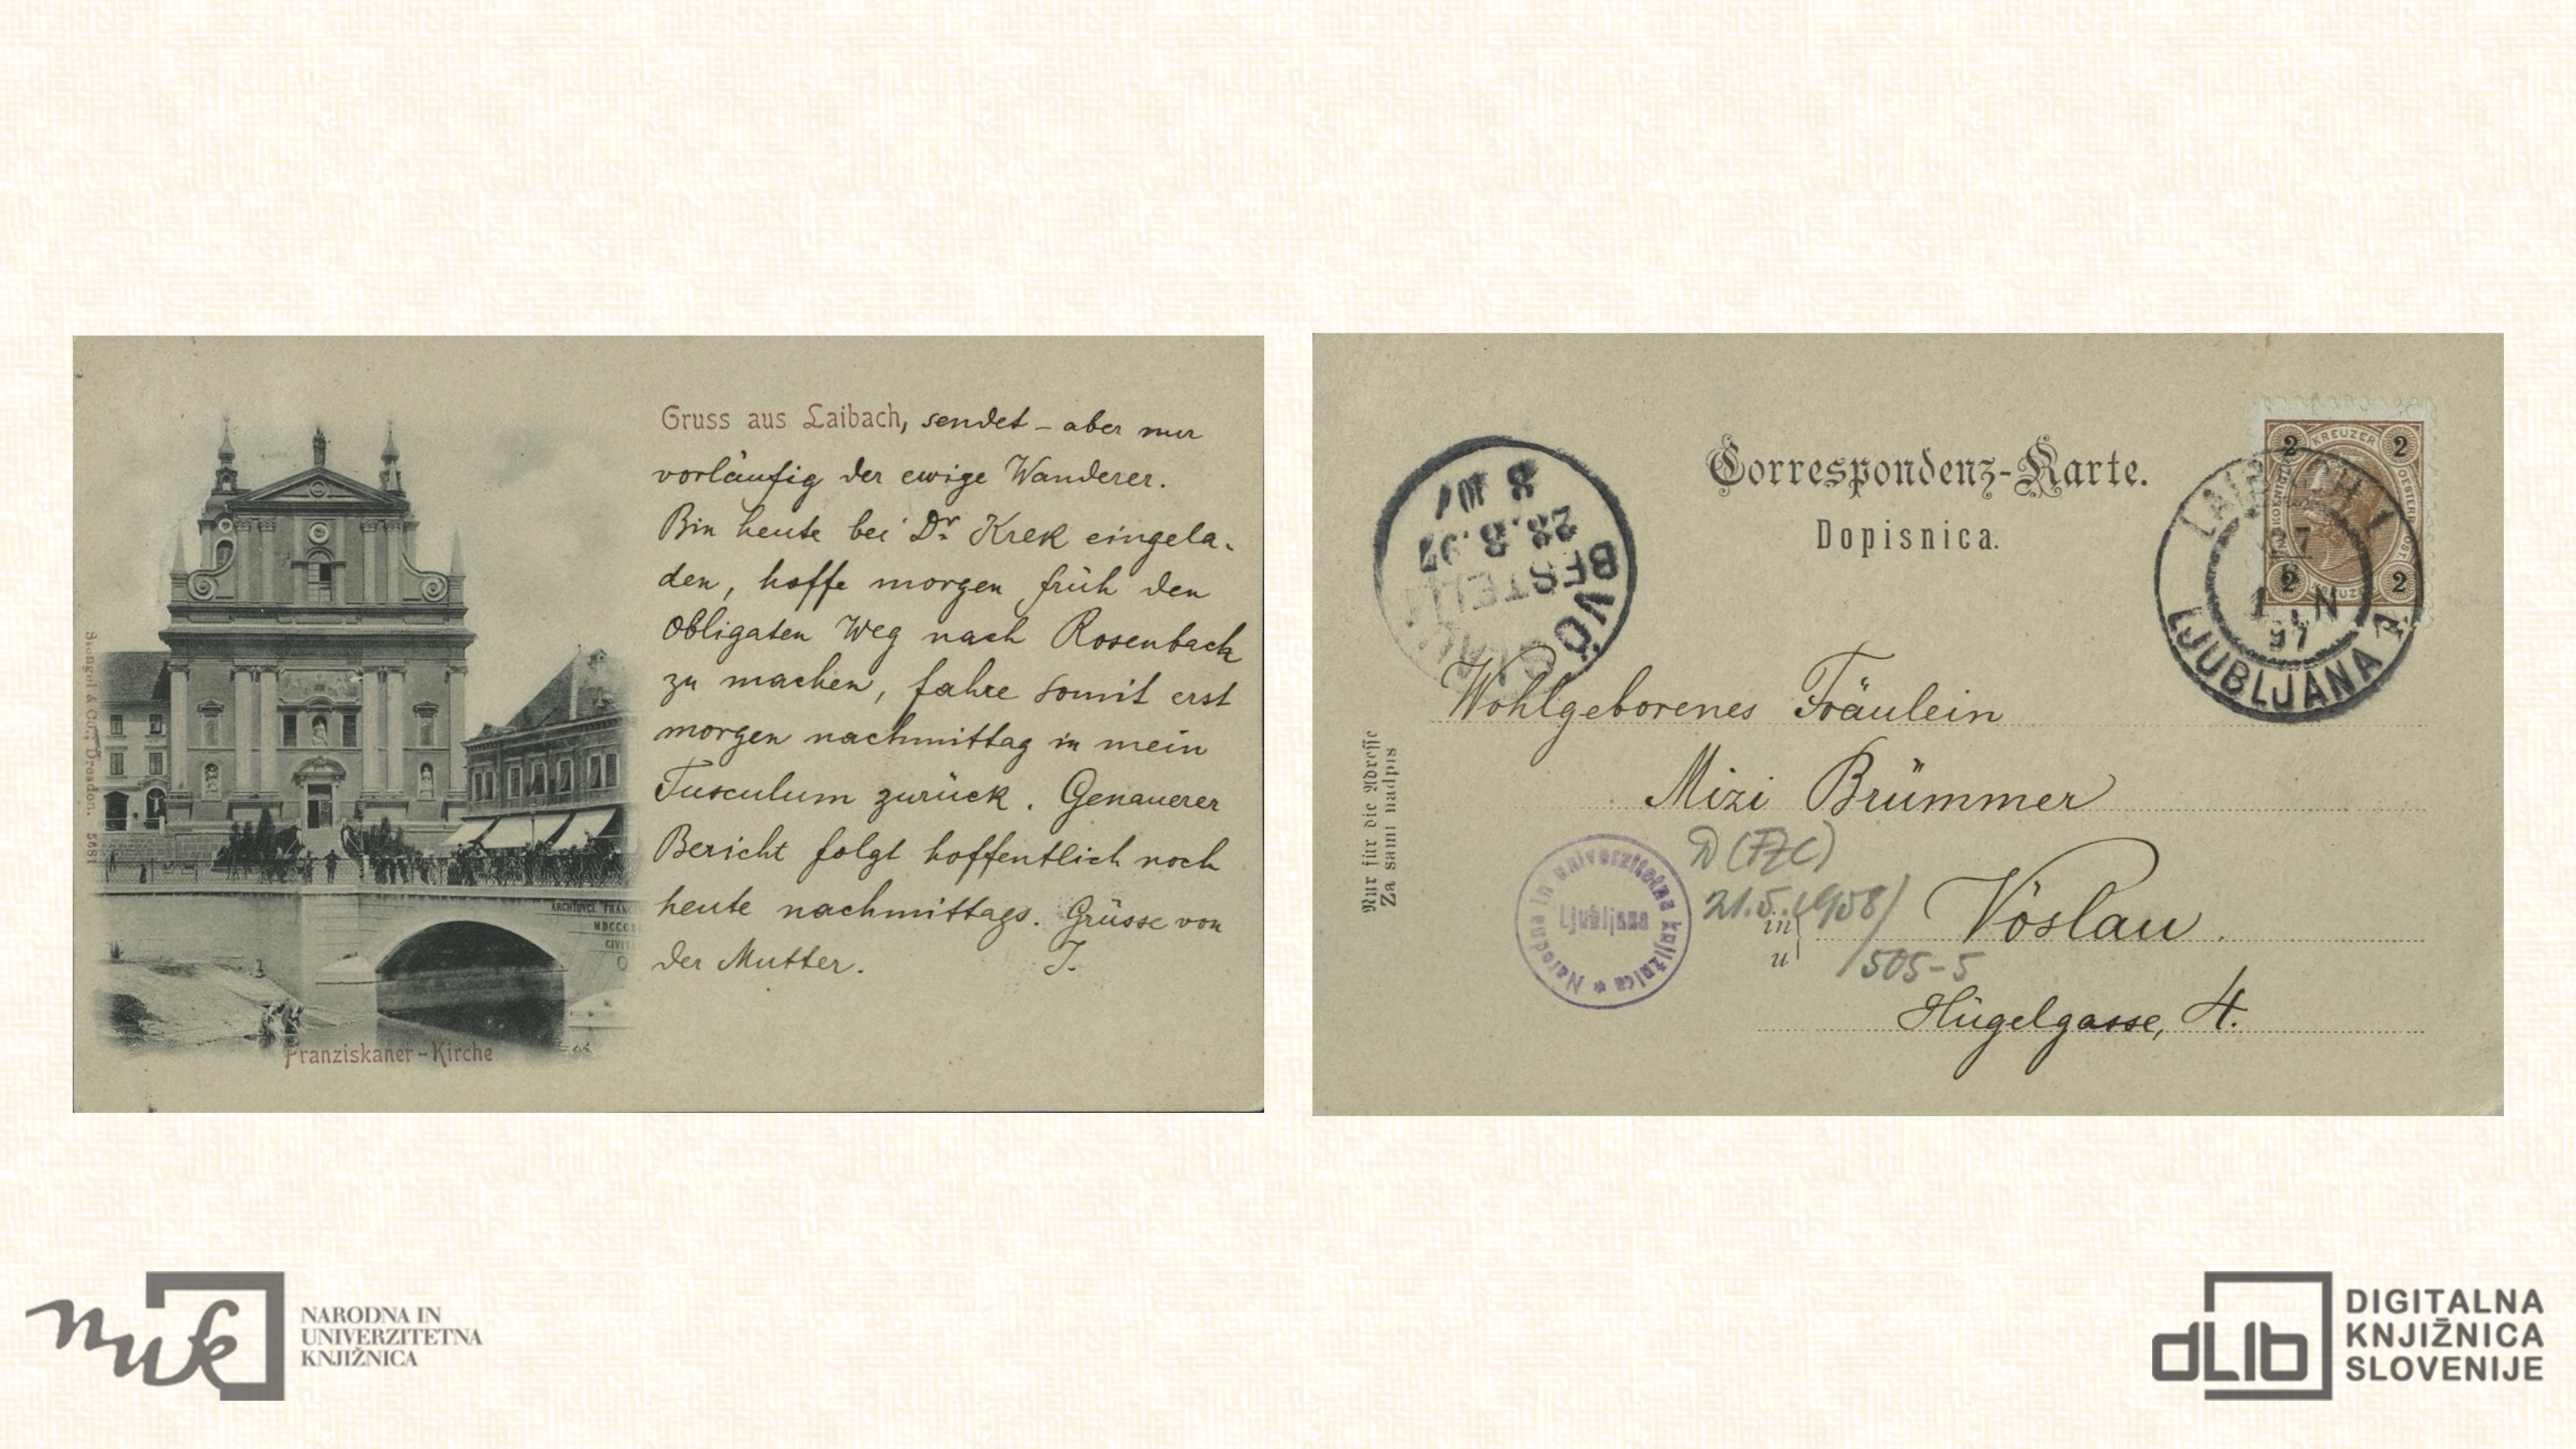 Gruss aus Laibach, sendet – aber nur
vorläufig der ewige Wanderer.
Bin heute bei Dr. Krek eingela-
den, hoffe morgen früh den
obligaten Weg nach Rosenbach
zu machen, fahre somit erst
morgen nachmittag in mein
Tusculum zurück. Genauerer
Bericht folgt hoffentlich noch
heute nachmittags. Grüsse von
der Mutter. T.
Stengel & Co., Dresden. 5681
ARCHIDVCI FRANC
MDCCC
CIVIT
Franziskaner-Kirche
Correspondenz-Karte.
Dopisnica.
2 KREUZER 2
2 2
LAIBACH 1
27
8
97
LJUBLJANA 1
VÖSLAU
BESTELLT
28.8.97
8
Wohlgeborenes Fräulein
Mizi Brümmer
D (FZC)
21.5.1958/
in
u
Vöslau.
/505-5
Hügelgasse, 4.
Nur für die Adresse
Za sami nadpis
Narodna in univerzitetna knjižnica *
Ljubljana
nuk
NARODNA IN
UNIVERZITETNA
KNJIŽNICA
dLib
DIGITALNA
KNJIŽNICA
SLOVENIJE